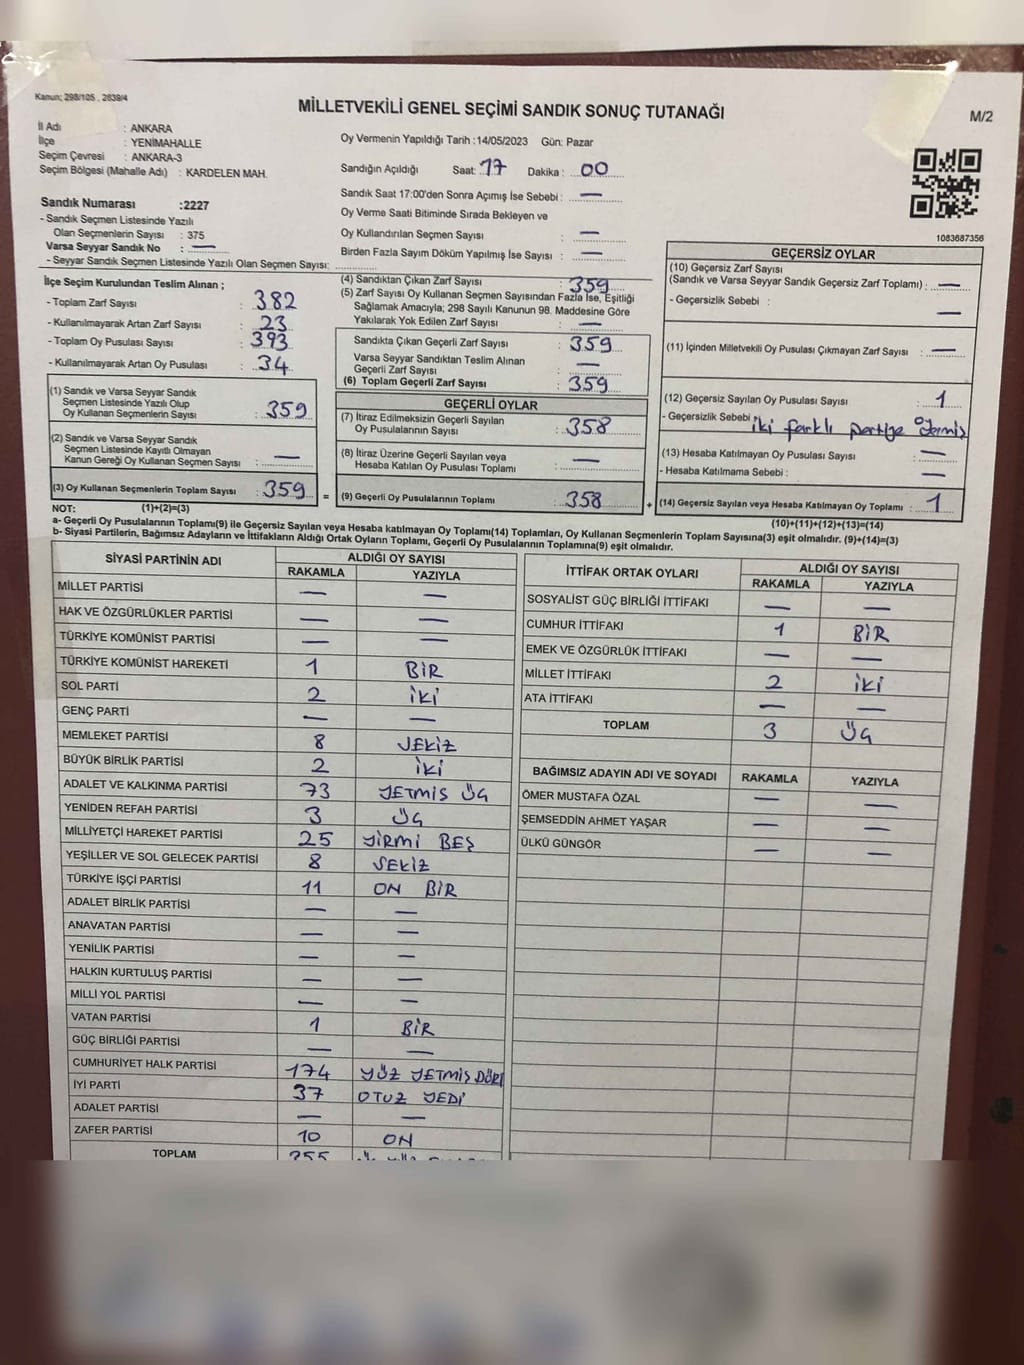 Kanun; 298/105 , 2839/4
MİLLETVEKİLİ GENEL SEÇİMİ SANDIK SONUÇ TUTANAĞI
M/2
İl Adı : ANKARA
İlçe : YENİMAHALLE
Seçim Çevresi : ANKARA-3
Seçim Bölgesi (Mahalle Adı) : KARDELEN MAH.
Sandık Numarası :2227
- Sandık Seçmen Listesinde Yazılı
Olan Seçmenlerin Sayısı : 375
Varsa Seyyar Sandık No : —
- Seyyar Sandık Seçmen Listesinde Yazılı Olan Seçmen Sayısı:
Oy Vermenin Yapıldığı Tarih :14/05/2023 Gün: Pazar
Sandığın Açıldığı Saat: 17 Dakika : 00
Sandık Saat 17:00'den Sonra Açımış İse Sebebi : —
Oy Verme Saati Bitiminde Sırada Bekleyen ve
Oy Kullandırılan Seçmen Sayısı : —
Birden Fazla Sayım Döküm Yapılmış İse Sayısı : —
1083687356
İlçe Seçim Kurulundan Teslim Alınan ;
- Toplam Zarf Sayısı : 382
- Kullanılmayarak Artan Zarf Sayısı : 23
- Toplam Oy Pusulası Sayısı : 393
- Kullanılmayarak Artan Oy Pusulası : 34
(1) Sandık ve Varsa Seyyar Sandık
Seçmen Listesinde Yazılı Olup
Oy Kullanan Seçmenlerin Sayısı : 359
(2) Sandık ve Varsa Seyyar Sandık
Seçmen Listesinde Kayıtlı Olmayan
Kanun Gereği Oy Kullanan Seçmen Sayısı : —
(3) Oy Kullanan Seçmenlerin Toplam Sayısı : 359 =
(4) Sandıktan Çıkan Zarf Sayısı : 359
(5) Zarf Sayısı Oy Kullanan Seçmen Sayısından Fazla İse, Eşitliği
Sağlamak Amacıyla; 298 Sayılı Kanunun 98. Maddesine Göre
Yakılarak Yok Edilen Zarf Sayısı : —
Sandıkta Çıkan Geçerli Zarf Sayısı : 359
Varsa Seyyar Sandıktan Teslim Alınan
Geçerli Zarf Sayısı : —
(6) Toplam Geçerli Zarf Sayısı : 359
GEÇERLİ OYLAR
(7) İtiraz Edilmeksizin Geçerli Sayılan
Oy Pusulalarının Sayısı : 358
(8) İtiraz Üzerine Geçerli Sayılan veya
Hesaba Katılan Oy Pusulası Toplamı : —
(9) Geçerli Oy Pusulalarının Toplamı : 358 +
GEÇERSİZ OYLAR
(10) Geçersiz Zarf Sayısı
(Sandık ve Varsa Seyyar Sandık Geçersiz Zarf Toplamı) : —
- Geçersizlik Sebebi : —
(11) İçinden Milletvekili Oy Pusulası Çıkmayan Zarf Sayısı : —
(12) Geçersiz Sayılan Oy Pusulası Sayısı : 1
- Geçersizlik Sebebi : iki farklı partiye
(13) Hesaba Katılmayan Oy Pusulası Sayısı : —
- Hesaba Katılmama Sebebi : —
(14) Geçersiz Sayılan veya Hesaba Katılmayan Oy Toplamı : 1
NOT: (1)+(2)=(3)
(10)+(11)+(12)+(13)=(14)
a- Geçerli Oy Pusulalarının Toplamı(9) ile Geçersiz Sayılan veya Hesaba katılmayan Oy Toplamı(14) Toplamları, Oy Kullanan Seçmenlerin Toplam Sayısına(3) eşit olmalıdır. (9)+(14)=(3)
b- Siyasi Partilerin, Bağımsız Adayların ve İttifakların Aldığı Ortak Oyların Toplamı, Geçerli Oy Pusulalarının Toplamına(9) eşit olmalıdır.
SİYASİ PARTİNİN ADI ALDIĞI OY SAYISI
RAKAMLA YAZIYLA
MİLLET PARTİSİ — —
HAK VE ÖZGÜRLÜKLER PARTİSİ — —
TÜRKİYE KOMÜNİST PARTİSİ — —
TÜRKİYE KOMÜNİST HAREKETİ 1 BİR
SOL PARTİ 2 İKİ
GENÇ PARTİ — —
MEMLEKET PARTİSİ 8 SEKİZ
BÜYÜK BİRLİK PARTİSİ 2 İKİ
ADALET VE KALKINMA PARTİSİ 73 YETMİŞ ÜÇ
YENİDEN REFAH PARTİSİ 3 ÜÇ
MİLLİYETÇİ HAREKET PARTİSİ 25 YİRMİ BEŞ
YEŞİLLER VE SOL GELECEK PARTİSİ 8 SEKİZ
TÜRKİYE İŞÇİ PARTİSİ 11 ON BİR
ADALET BİRLİK PARTİSİ — —
ANAVATAN PARTİSİ — —
YENİLİK PARTİSİ — —
HALKIN KURTULUŞ PARTİSİ — —
MİLLİ YOL PARTİSİ — —
VATAN PARTİSİ 1 BİR
GÜÇ BİRLİĞİ PARTİSİ — —
CUMHURİYET HALK PARTİSİ 174 YÜZ YETMİŞ DÖRT
İYİ PARTİ 37 OTUZ YEDİ
ADALET PARTİSİ — —
ZAFER PARTİSİ 10 ON
TOPLAM 355
İTTİFAK ORTAK OYLARI ALDIĞI OY SAYISI
RAKAMLA YAZIYLA
SOSYALİST GÜÇ BİRLİĞİ İTTİFAKI — —
CUMHUR İTTİFAKI 1 BİR
EMEK VE ÖZGÜRLÜK İTTİFAKI — —
MİLLET İTTİFAKI 2 İKİ
ATA İTTİFAKI — —
TOPLAM 3 ÜÇ
BAĞIMSIZ ADAYIN ADI VE SOYADI RAKAMLA YAZIYLA
ÖMER MUSTAFA ÖZAL — —
ŞEMSEDDİN AHMET YAŞAR — —
ÜLKÜ GÜNGÖR — —